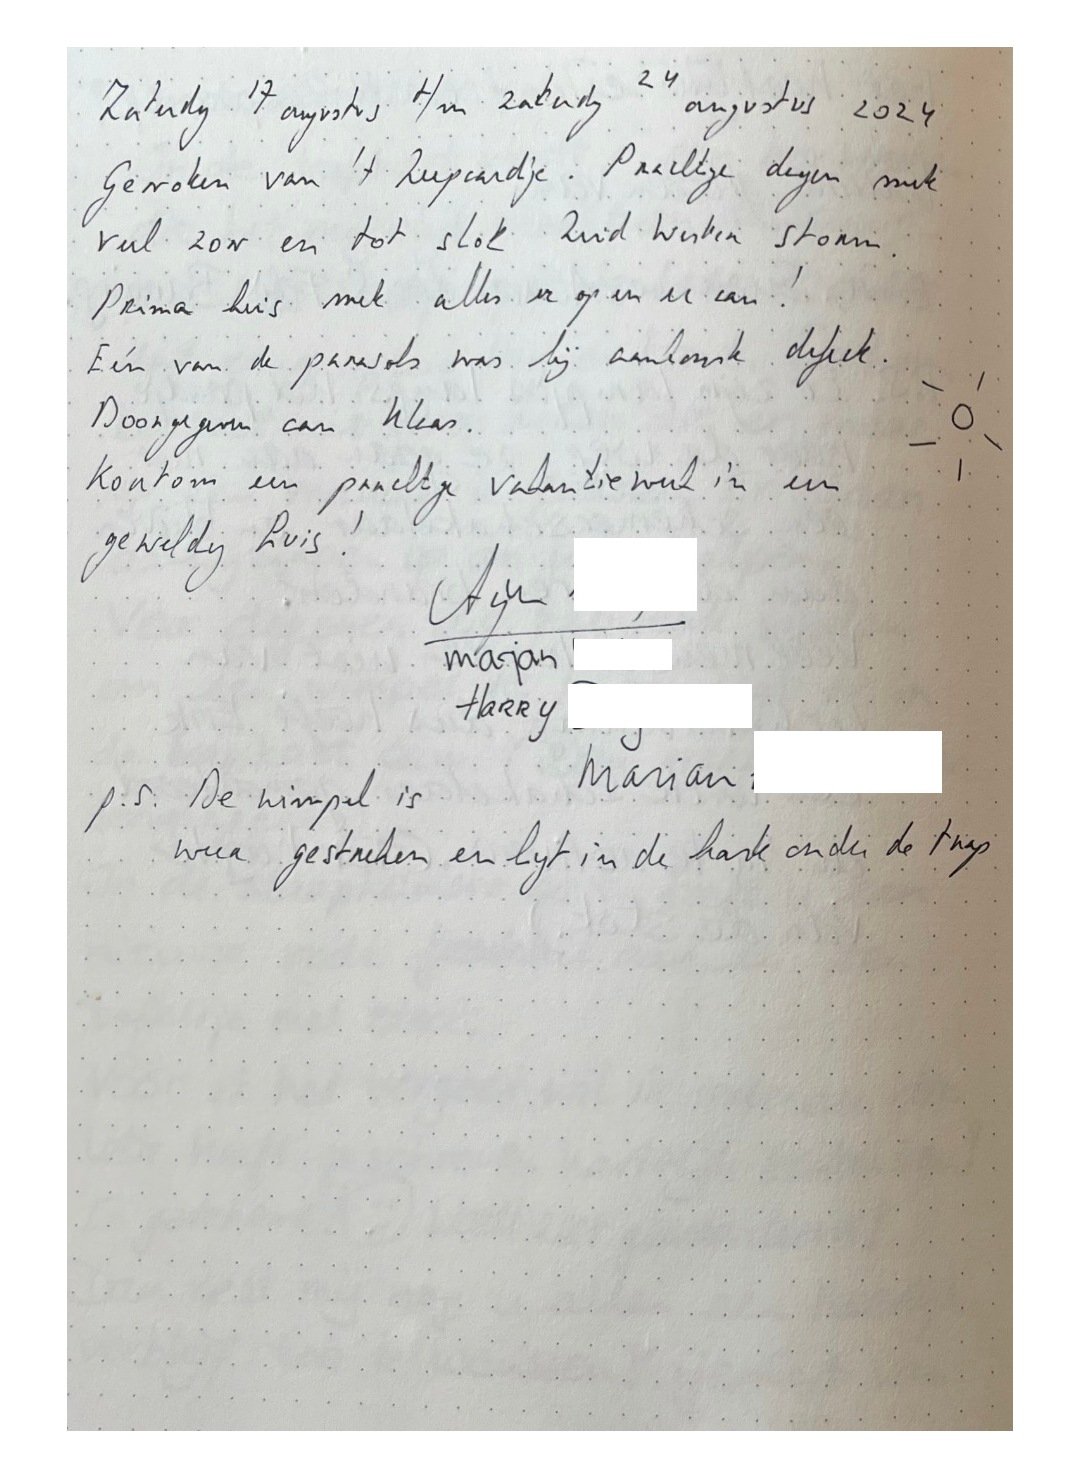 Zaterdag 17 augustus t/m zaterdag 24 augustus 2024
Genoten van 't Zeepaardje. Prachtige dagen met
veel zon en tot slot Zuid Westen storm.
Prima huis met alles er op en er aan!
Eén van de parasols was bij aankomst defect.
Doorgegeven aan Klaas.
Kortom een prachtige vakantieweek in een
geweldig huis!
Marjan
HARRY
Marian
p.s. De wimpel is
weer gestreken en ligt in de kast onder de trap